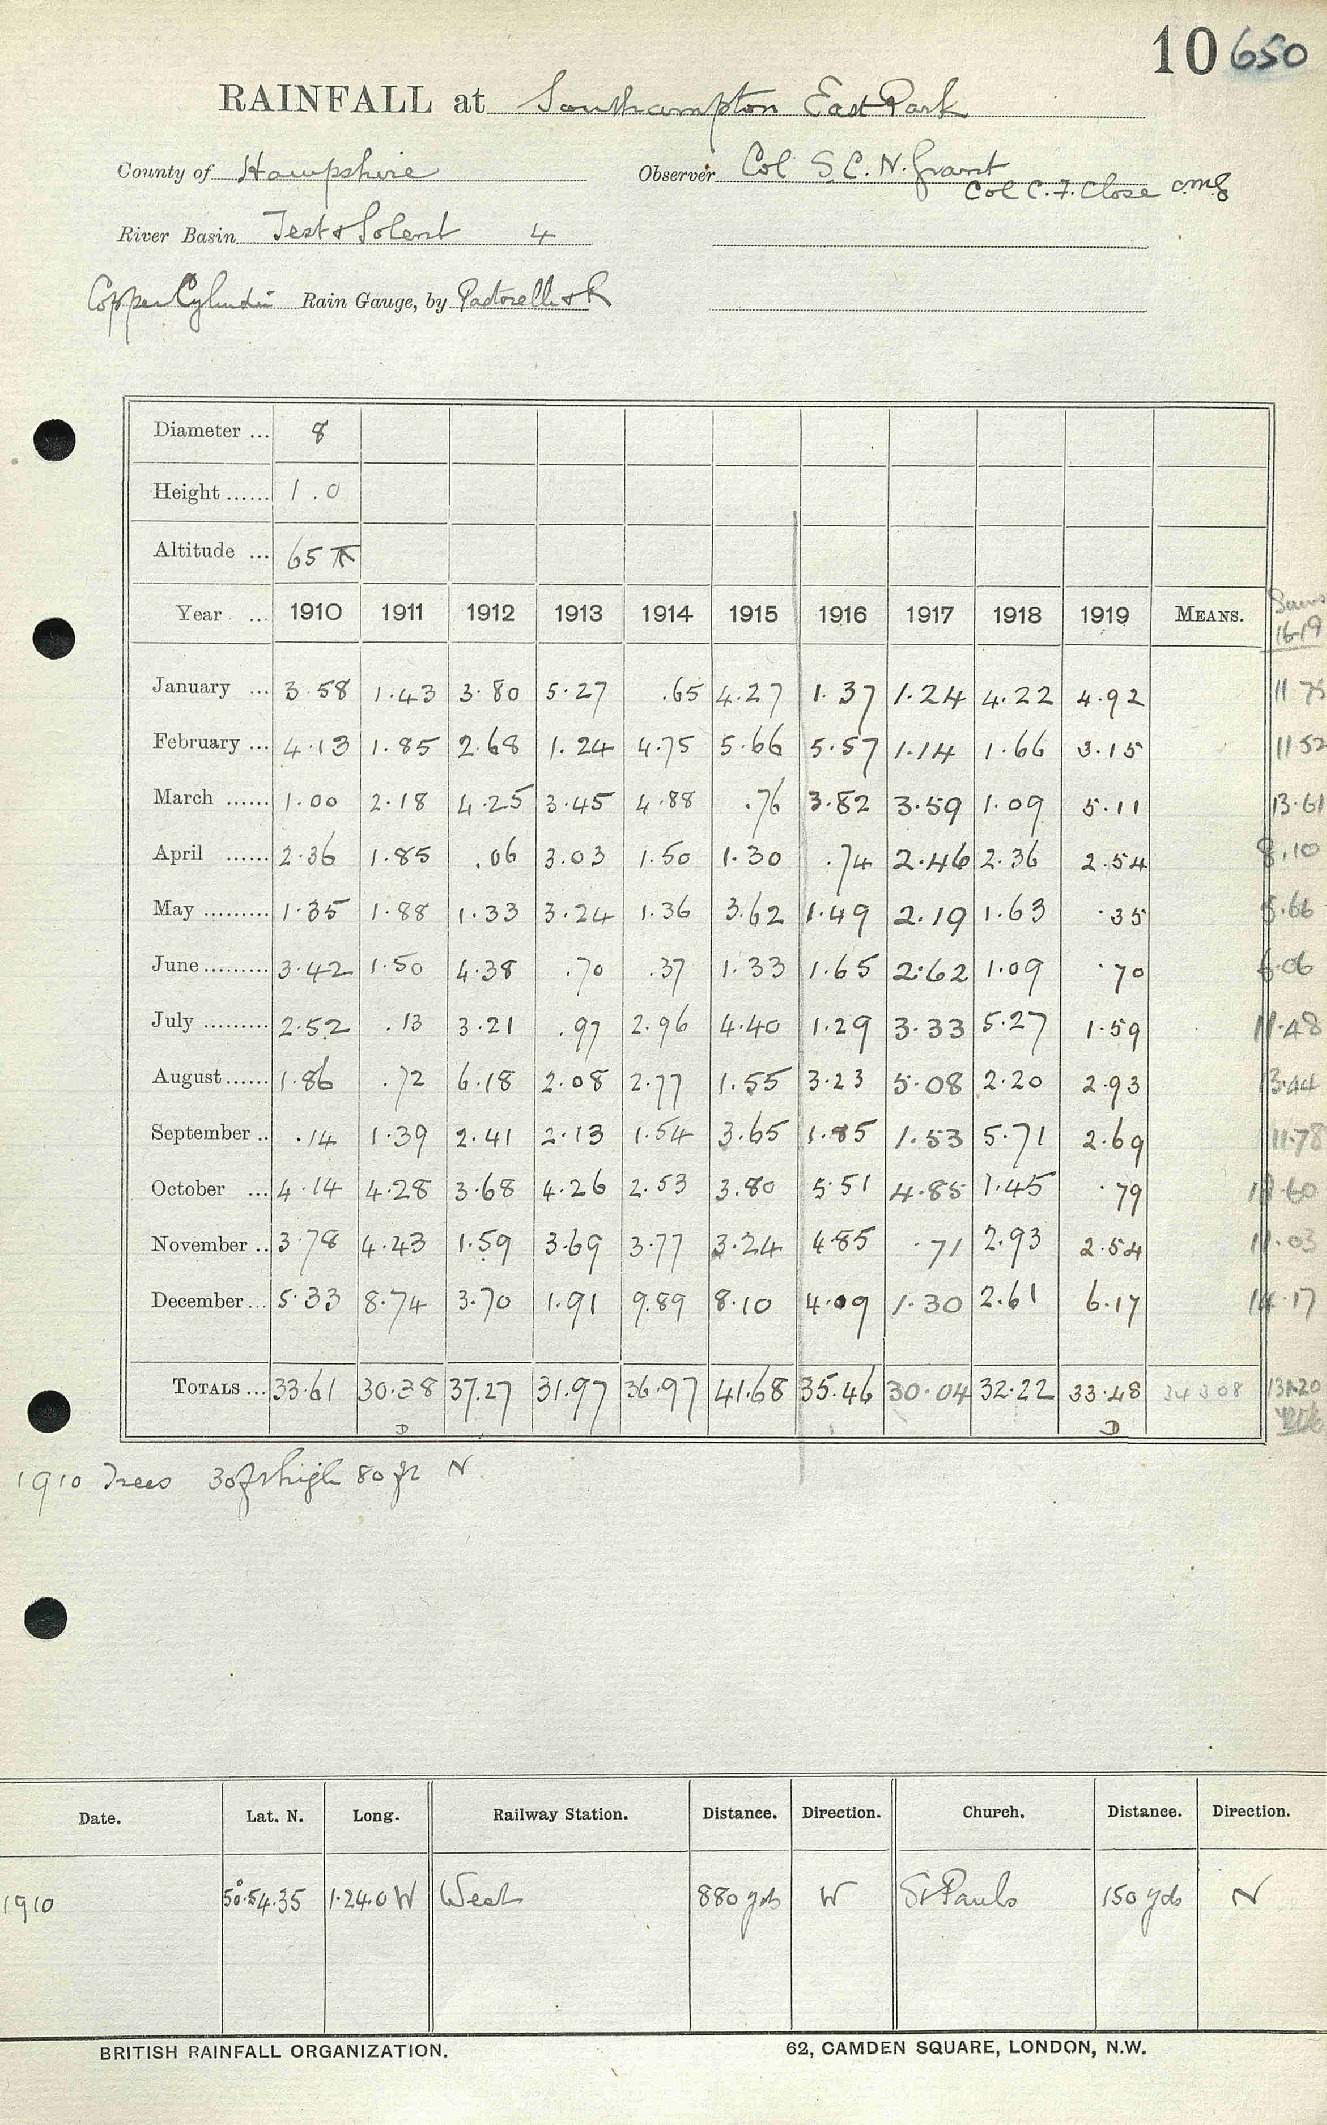 10 650
RAINFALL at Southampton East Park
County of Hampshire Observer Col S. C. N. Grant
Col C. F. Close CMG
River Basin Test & Solent 4
Copper Cylinder Rain Gauge, by Pastorelli & R
Diameter ... 8
Height ...... 1.0
Altitude ... 65 ft
Year ... 1910 1911 1912 1913 1914 1915 1916 1917 1918 1919 MEANS. Sums 16-19
January ... 3.58 1.43 3.80 5.27 .65 4.27 1.37 1.24 4.22 4.92 11.75
February ... 4.13 1.85 2.68 1.24 4.75 5.66 5.57 1.14 1.66 3.15 11.52
March ...... 1.00 2.18 4.25 3.45 4.88 .76 3.82 3.59 1.09 5.11 13.61
April ...... 2.36 1.85 .06 3.03 1.50 1.30 .74 2.46 2.36 2.54 8.10
May ......... 1.35 1.88 1.33 3.24 1.36 3.62 1.49 2.19 1.63 .35 5.66
June ......... 3.42 1.50 4.38 .70 .37 1.33 1.65 2.62 1.09 .70 6.06
July ......... 2.52 .13 3.21 .97 2.96 4.40 1.29 3.33 5.27 1.59 11.48
August ...... 1.86 .72 6.18 2.08 2.77 1.55 3.23 5.08 2.20 2.93 13.44
September .. .14 1.39 2.41 2.13 1.54 3.65 1.85 1.53 5.71 2.69 11.78
October ... 4.14 4.28 3.68 4.26 2.53 3.80 5.51 4.85 1.45 .79 12.60
November .. 3.78 4.43 1.59 3.69 3.77 3.24 4.85 .71 2.93 2.54 11.03
December ... 5.33 8.74 3.70 1.91 9.89 8.10 4.09 1.30 2.61 6.17 14.17
TOTALS ... 33.61 30.38 37.27 31.97 36.97 41.68 35.46 30.04 32.22 33.48 34.308 131.20
D D
1910 Trees 30ft high 80 ft N
Date. Lat. N. Long. Railway Station. Distance. Direction. Church. Distance. Direction.
1910 50°.54.35 1.24.0 W West 880 yds W St Pauls 150 yds N
BRITISH RAINFALL ORGANIZATION. 62, CAMDEN SQUARE, LONDON, N.W.